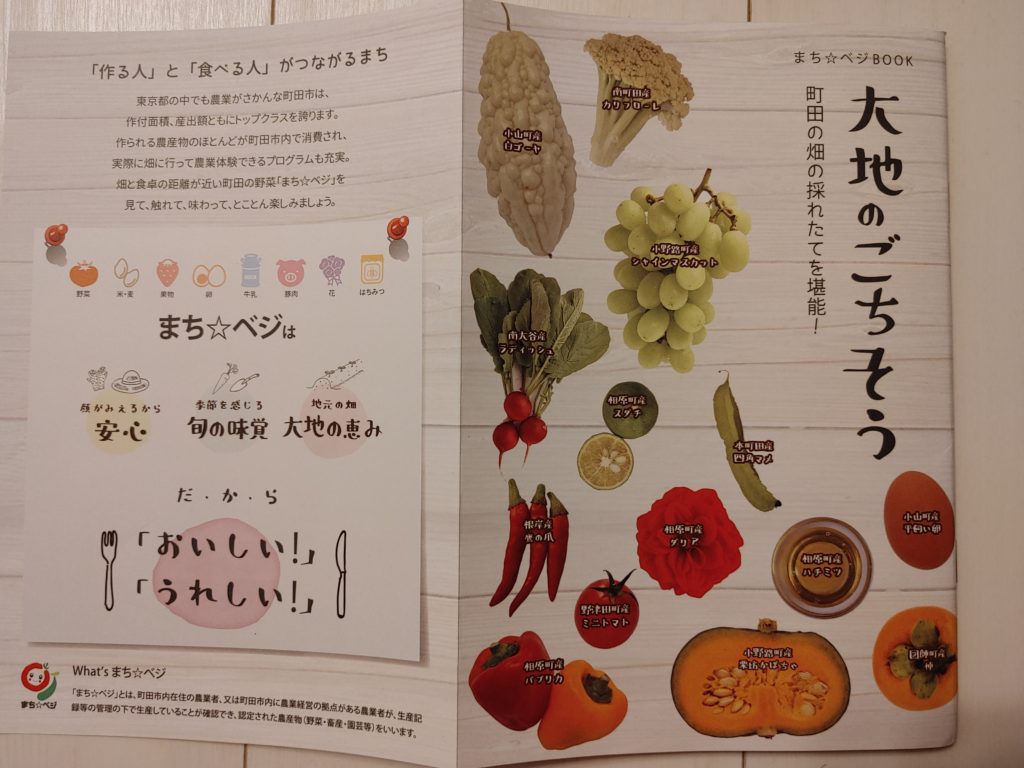 まち☆ベジBOOK
大地のごちそう
町田の畑の採れたてを堪能！
小山町産
白ゴーヤ
南町田産
カリフローレ
小野路町産
シャインマスカット
南大谷産
ラディッシュ
相原町産
スダチ
本町田産
四角マメ
根岸産
鷹の爪
相原町産
ダリア
相原町産
ハチミツ
小山町産
平飼い卵
野津田町産
ミニトマト
相原町産
パプリカ
小野路町産
栗坊かぼちゃ
図師町産
柿
「作る人」と「食べる人」がつながるまち
東京都の中でも農業がさかんな町田市は、
作付面積、産出額ともにトップクラスを誇ります。
作られる農産物のほとんどが町田市内で消費され、
実際に畑に行って農業体験できるプログラムも充実。
畑と食卓の距離が近い町田の野菜「まち☆ベジ」を
見て、触れて、味わって、とことん楽しみましょう。
野菜 米・麦 果物 卵 牛乳 豚肉 花 はちみつ
まち☆ベジは
顔がみえるから
安心
季節を感じる
旬の味覚
地元の畑
大地の恵み
だ・か・ら
「おいしい！」
「うれしい！」
What's まち☆ベジ
まち☆ベジ
「まち☆ベジ」とは、町田市内在住の農業者、又は町田市内に農業経営の拠点がある農業者が、生産記
録等の管理の下で生産していることが確認でき、認定された農産物（野菜・畜産・園芸等）をいいます。